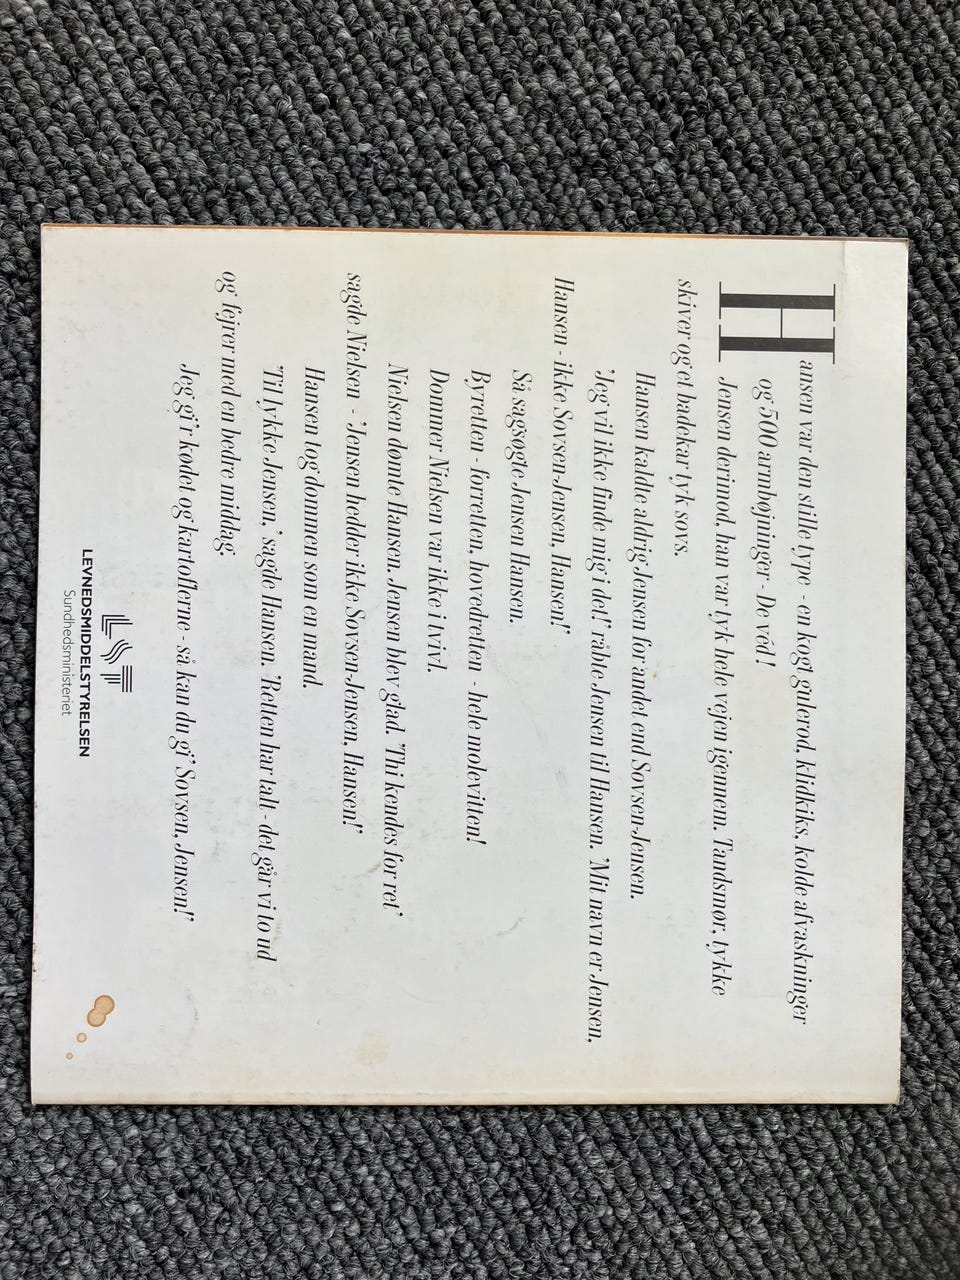 Hansen var den stille type - en kogt gulerod, klidkiks, kolde afvaskninger
og 500 armbøjninger - De véd!
Jensen derimod, han var tyk hele vejen igennem. Tandsmør, tykke
skiver og et badekar tyk sovs.
Hansen kaldte aldrig Jensen for andet end Sovsen-Jensen.
'Jeg vil ikke finde mig i det!' råbte Jensen til Hansen. 'Mit navn er Jensen,
Hansen - ikke Sovsen-Jensen, Hansen!'
Så sagsøgte Jensen Hansen.
Byretten - forretten, hovedretten - hele molevitten!
Dommer Nielsen var ikke i tvivl.
Nielsen dømte Hansen. Jensen blev glad. 'Thi kendes for ret'
sagde Nielsen - 'Jensen hedder ikke Sovsen-Jensen, Hansen!'
Hansen tog dommen som en mand.
'Til lykke Jensen,' sagde Hansen. 'Retten har talt - det går vi to ud
og fejrer med en bedre middag.
Jeg gi'r kødet og kartoflerne - så kan du gi' Sovsen, Jensen!'
LST
LEVNEDSMIDDELSTYRELSEN
Sundhedsministeriet